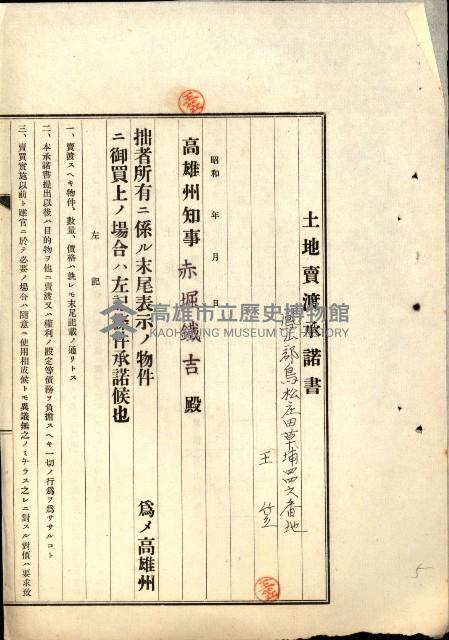 土地賣渡承諾書
鳳山郡鳥松庄田草埔四四六番地
王 笠
昭和 年 月 日
高雄州知事 赤堀鐵吉 殿
爲メ高雄州
拙者所有ニ係ル末尾表示ノ物件
ニ御買上ノ場合ハ左記條件承諾候也
左記
一、賣渡スヘキ物件、數量、價格ハ孰レモ末尾記載ノ通リトス
二、本承諾書提出以後ハ目的物ヲ他ニ賣渡又ハ權利ノ設定等債務ヲ負擔スヘキ一切ノ行爲ヲ爲ササルコト
三、賣買實施以前ト雖官ニ於テ必要ノ場合ハ隨意ニ使用相成候トモ異議無之ノミナラス之レニ對スル對價ハ要求致
高雄市立歷史博物館
KAOHSIUNG MUSEUM OF HISTORY
5